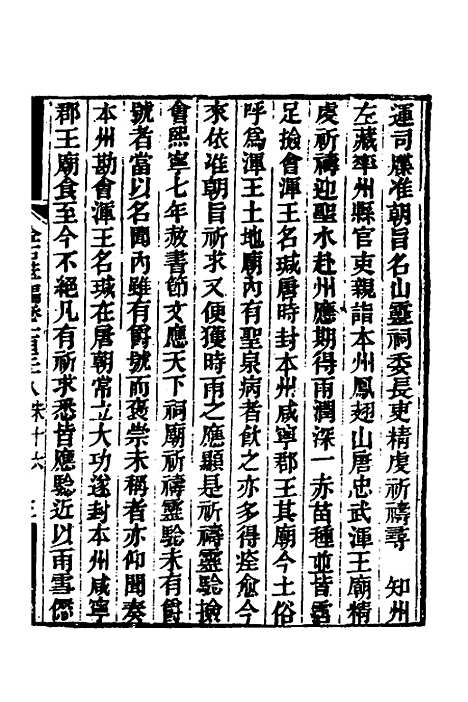 運司牒准朝旨名山靈祠委長吏精虔祈禱尋　知州
左藏率州縣官吏親詣本州鳳翅山唐忠武渾王廟精
虔祈禱迎聖水赴州應期得雨潤深一赤苗種並皆霑
足撿會渾王名瑊唐時封本州咸寧郡王其廟今土俗
呼爲渾王土地廟內有聖泉病者飲之亦多得痊愈今
來依准朝旨祈求又便獲時雨之應顯是祈禱靈驗撿
會熙寧七年赦書節文應天下祠廟祈禱靈驗未有爵
號者當以名聞內雖有爵號而褒崇未稱者亦仰聞奏
本州勘會渾王名瑊在唐朝常立大功遂封本州咸寧
郡王廟食至今不絕凡有祈求悉皆應驗近以雨雪愆
金石萃編卷一百三十八 宋十六 三